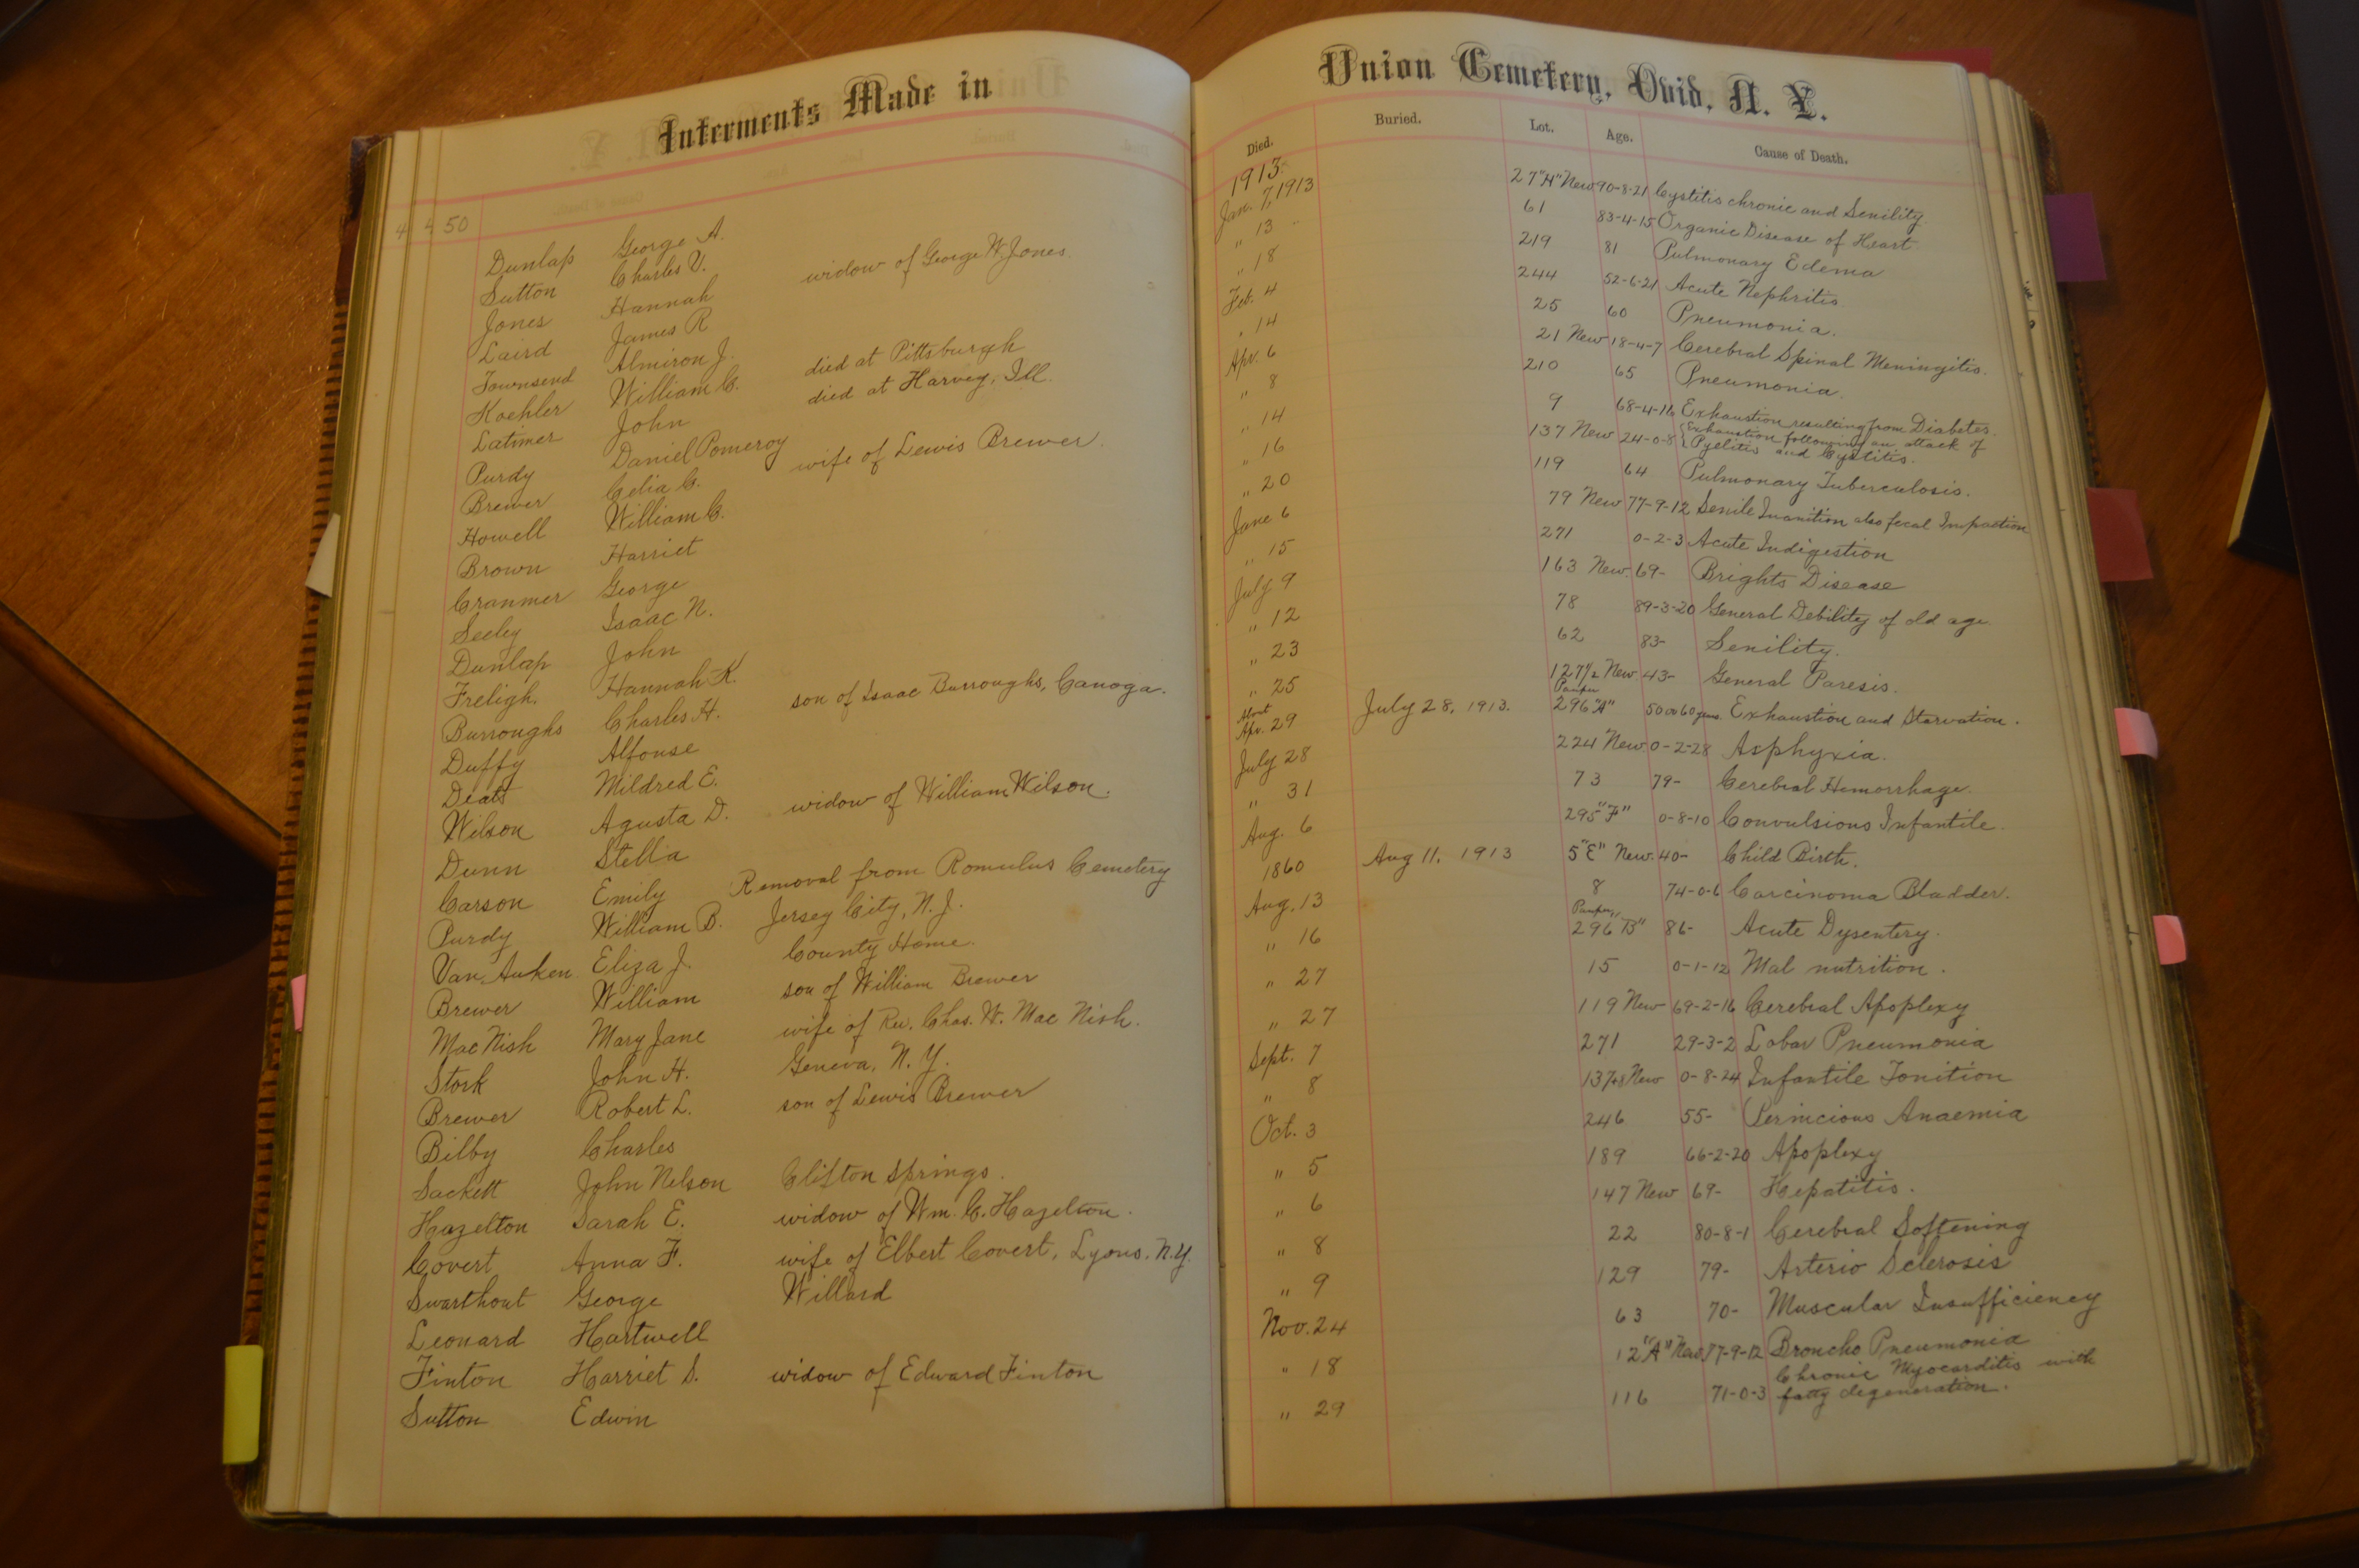 Interments Made in
4 4 50
Dunlap George A.
Sutton Charles V.
Jones Hannah widow of George W. Jones.
Laird James R
Townsend Almiron J.
Koehler William C. died at Pittsburgh
Latimer John died at Harvey, Ill.
Purdy Daniel Pomeroy
Brewer Celia C. wife of Lewis Brewer.
Howell William C.
Brown Harriet
Cranmer George
Seeley Isaac N.
Dunlap John
Freligh. Hannah K.
Burroughs Charles H. son of Isaac Burroughs, Canoga.
Duffy Alfonse
Deats Mildred E.
Wilson Agusta D. widow of William Wilson.
Dunn Stella
Carson Emily Removal from Romulus Cemetery
Purdy William B. Jersey City, N. J.
Van Auken Eliza J. County Home.
Brewer William son of William Brewer
Mac Nish Mary Jane wife of Rev. Chas. W. Mac Nish.
Stork John H. Geneva, N. Y.
Brewer Robert L. son of Lewis Brewer
Bilby Charles
Sackett John Nelson Clifton Springs.
Hazelton Sarah E. widow of Wm. C. Hazelton.
Covert Anna F. wife of Elbert Covert, Lyons, N.Y.
Swarthout George Willard
Leonard Hartwell
Finton Harriet S. widow of Edward Finton
Sutton Edwin
Union Cemetery, Ovid, N. Y.
Died. Buried. Lot. Age. Cause of Death.
1913.
Jan. 7, 1913 27 "H" New 90-8-21 Cystitis chronic and Senility.
" 13 " 61 83-4-15 Organic Disease of Heart.
" 18 219 81 Pulmonary Edema
Feb. 4 244 52-6-21 Acute Nephritis.
" 14 25 60 Pneumonia.
Apr. 6 21 New 18-4-7 Cerebral Spinal Meningitis.
" 8 210 65 Pneumonia.
" 14 9 68-4-16 Exhaustion resulting from Diabetes.
" 16 137 New 24-0-8 { Exhaustion following an attack of
Pyelitis and Cystitis.
" 20 119 64 Pulmonary Tuberculosis.
June 6 79 New 77-9-12 Senile Inanition also fecal Impaction
" 15 271 0-2-3 Acute Indigestion
July 9 163 New. 69- Brights Disease
" 12 78 89-3-20 General Debility of old age.
" 23 62 83- Senility.
" 25 127 1/2 New 43- General Paresis.
About Pauper
Apr. 29 July 28, 1913. 296 "A" 50 or 60 years. Exhaustion and Starvation.
July 28 224 New 0-2-28 Asphyxia.
" 31 73 79- Cerebral Hemorrhage.
Aug. 6 295 "F" 0-8-10 Convulsions Infantile.
1860 Aug 11, 1913 5 "E" New. 40- Child Birth.
Aug. 13 8 74-0-6 Carcinoma Bladder.
Pauper
" 16 296 "B" 86- Acute Dysentery.
" 27 15 0-1-12 Mal nutrition.
" 27 119 New 69-2-16 Cerebral Apoplexy
Sept. 7 271 29-3-2 Lobar Pneumonia
" 8 137 New 0-8-24 Infantile Tonition
Oct. 3 246 55- Pernicious Anaemia
" 5 189 66-2-20 Apoplexy
" 6 147 New 69- Hepatitis.
" 8 22 80-8-1 Cerebral Softening
" 9 129 79- Arterio Sclerosis
Nov. 24 63 70- Muscular Insufficiency
" 18 12 "A" New 77-9-12 Broncho Pneumonia
Chronic Myocarditis with
" 29 116 71-0-3 fatty degeneration.